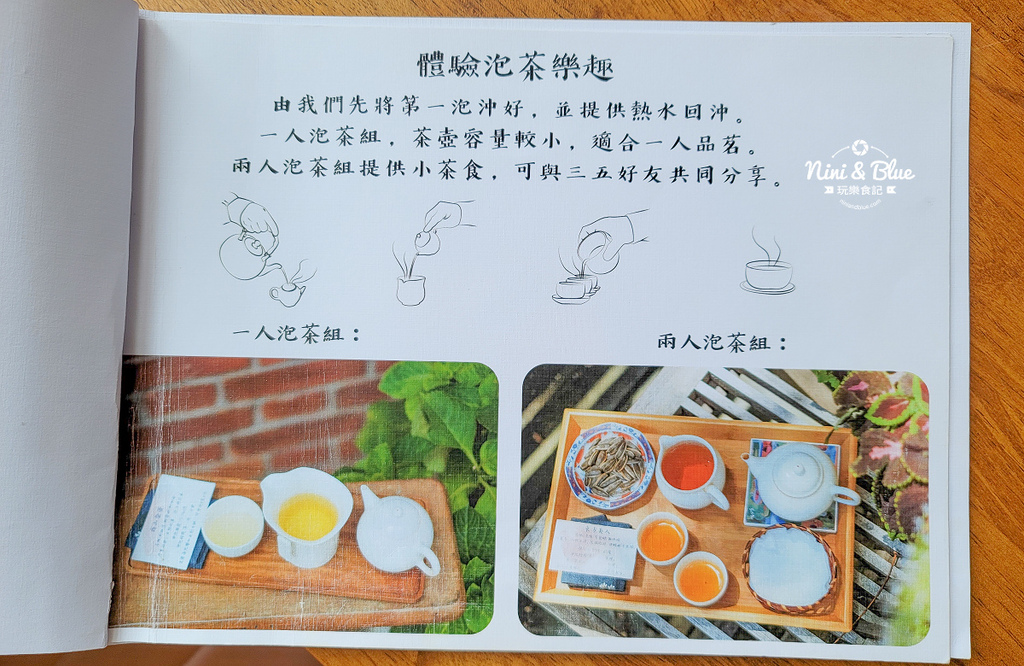 體驗泡茶樂趣
由我們先將第一泡沖好，並提供熱水回沖。
一人泡茶組，茶壺容量較小，適合一人品茗。
兩人泡茶組提供小茶食，可與三五好友共同分享。
Nini & Blue
玩樂食記
一人泡茶組：
兩人泡茶組：